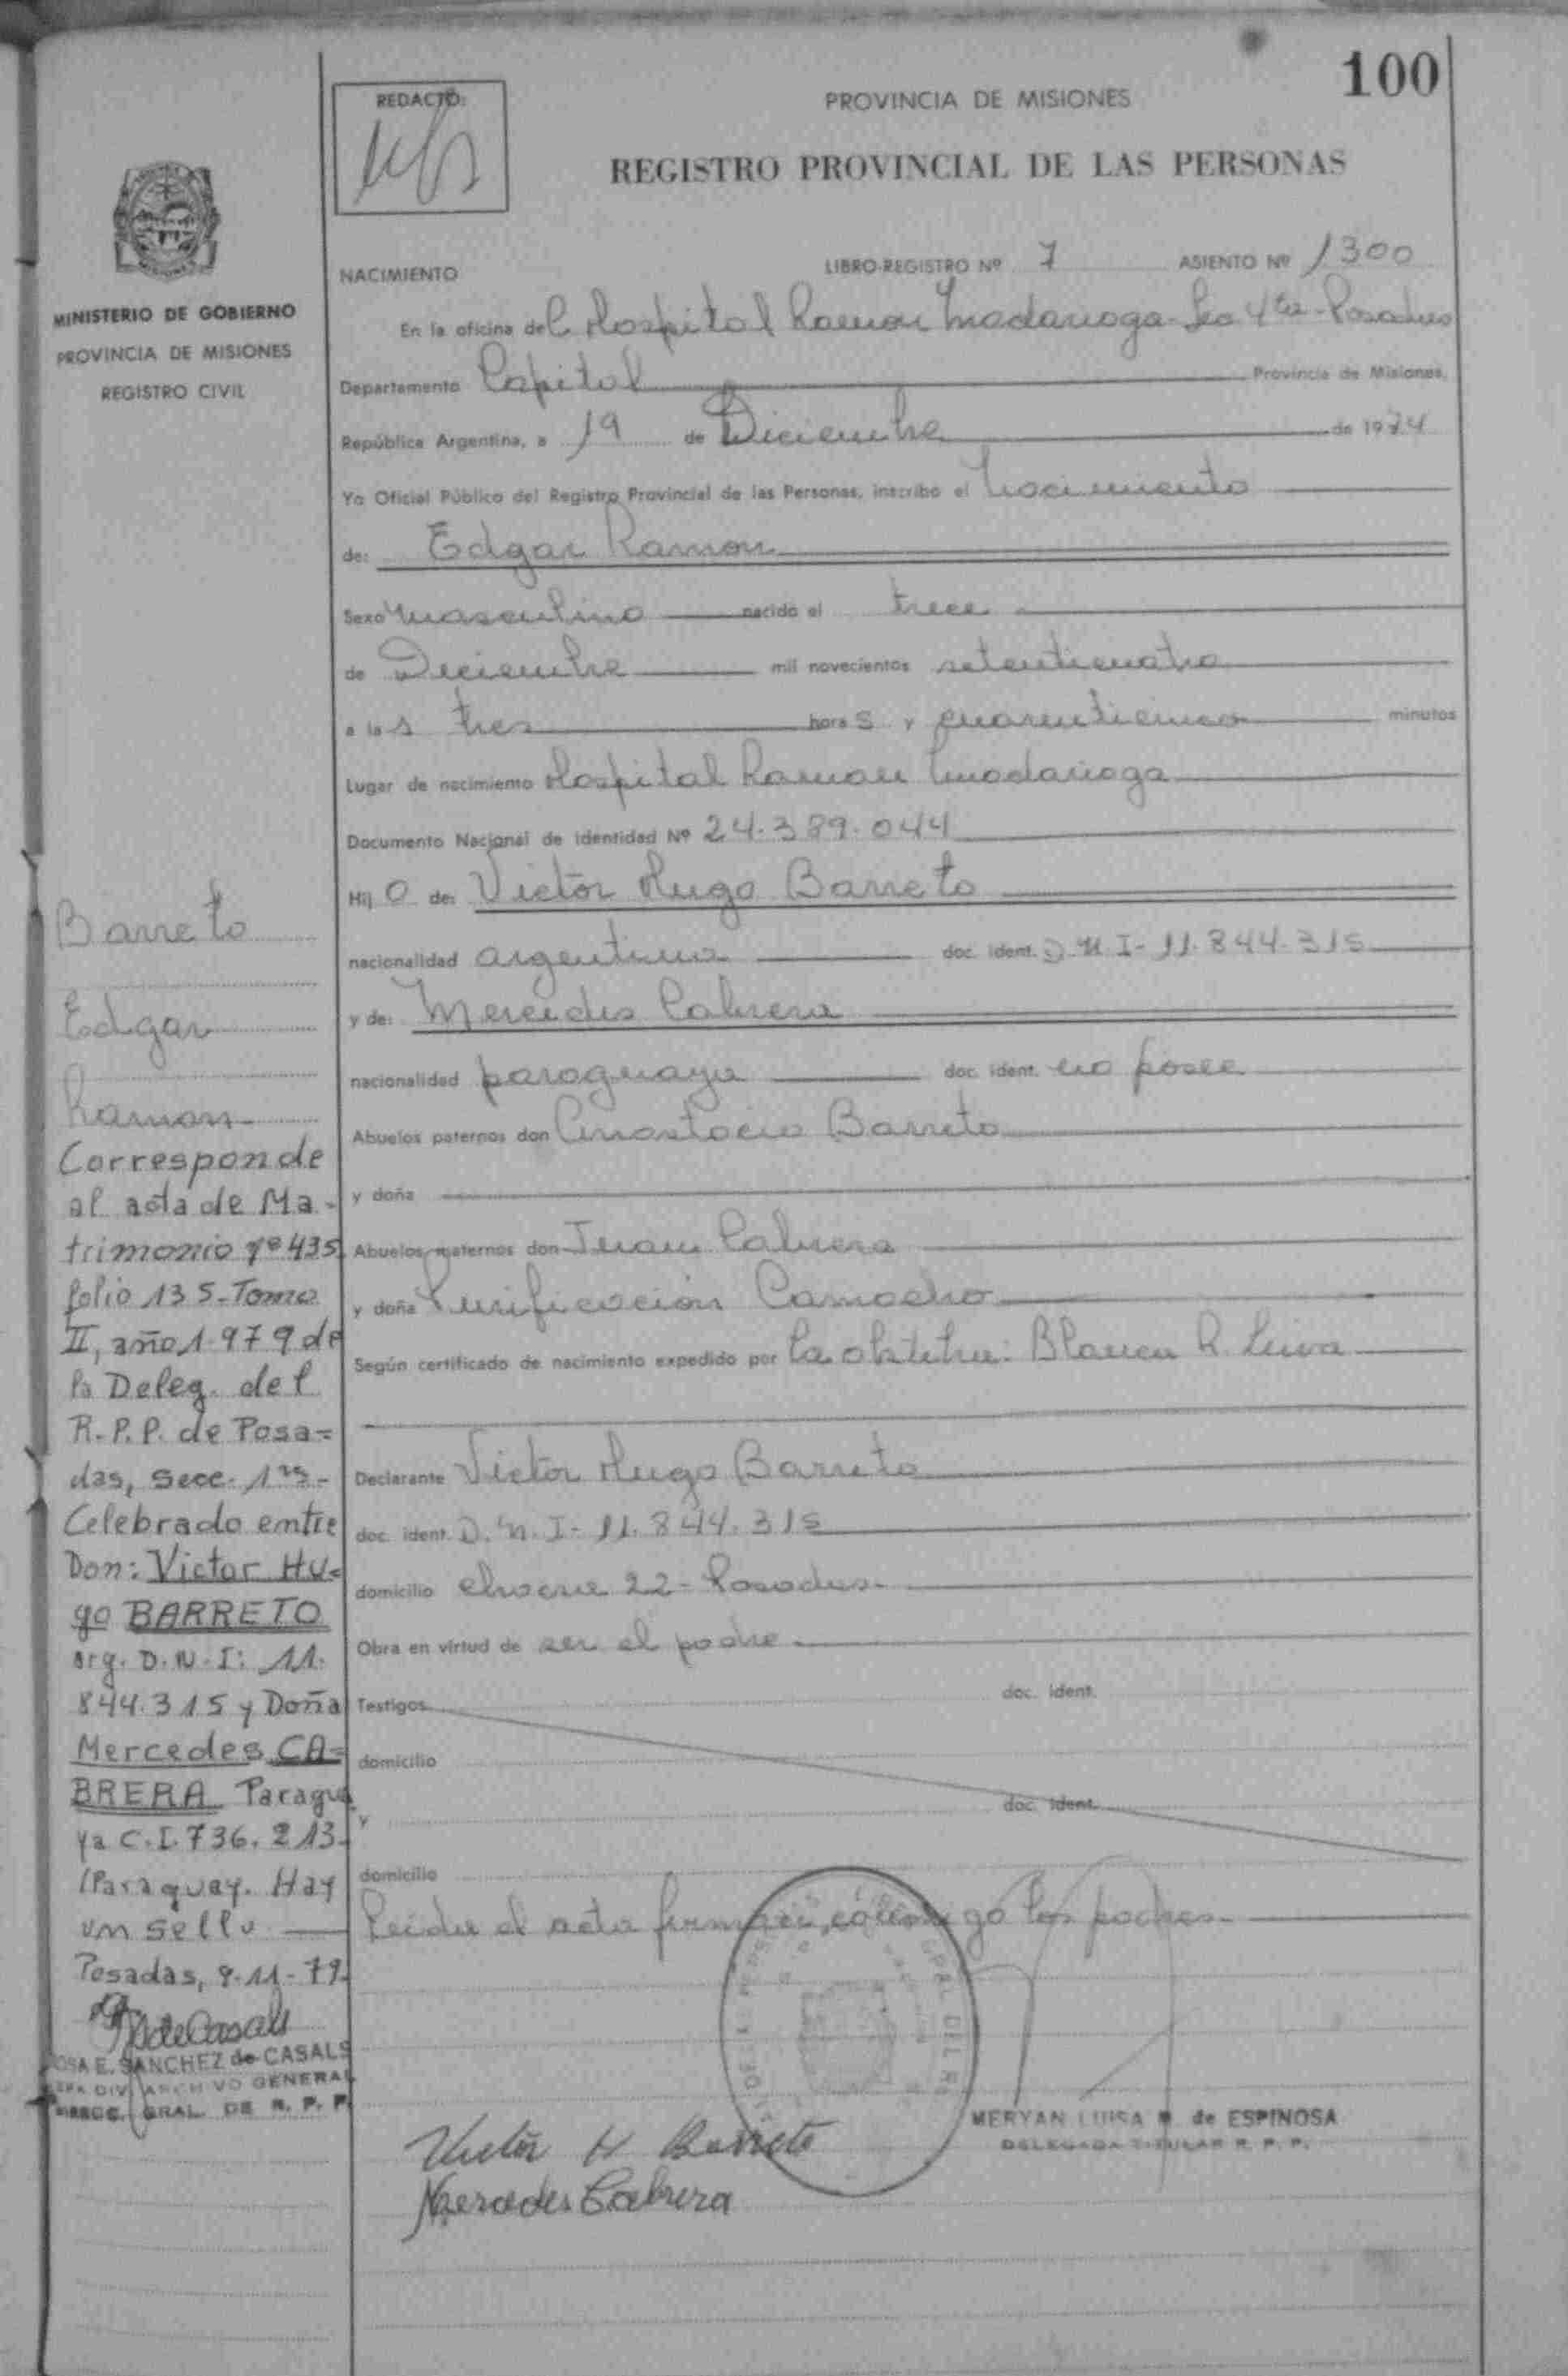 100
REDACTÓ:
PROVINCIA DE MISIONES
REGISTRO PROVINCIAL DE LAS PERSONAS
MINISTERIO DE GOBIERNO
PROVINCIA DE MISIONES
REGISTRO CIVIL
NACIMIENTO
LIBRO-REGISTRO Nº 7 ASIENTO Nº 1300
En la oficina del Hospital Ramon Madariaga - Sec 4ta - Posadas
Departamento Capital Provincia de Misiones,
República Argentina, a 19 de Diciembre de 1974
Yo Oficial Público del Registro Provincial de las Personas, inscribo el Nacimiento
de: Edgar Ramon
Sexo masculino nacido el trece
de Diciembre mil novecientos setenticuatro
a las tres horas y cuarenticinco minutos
Lugar de nacimiento Hospital Ramon Madariaga
Documento Nacional de Identidad Nº 24.389.044
Hijo de: Victor Hugo Barreto
nacionalidad argentina doc. ident. D.N.I- 11.844.315
y de: Mercedes Cabrera
nacionalidad paraguaya doc. ident. no posee
Abuelos paternos don Anastacio Barreto
y doña
Abuelos maternos don Juan Cabrera
y doña Purificación Camacho
Según certificado de nacimiento expedido por la obstetra: Blanca R. Leiva
Declarante Victor Hugo Barreto
doc. ident. D.N.I- 11.844.315
domicilio chacra 22 - Posadas -
Obra en virtud de ser el padre -
Testigos doc. ident.
domicilio
y doc. ident.
domicilio
Leida el acta firman conmigo los padres -
Victor H Barreto
Mercedes Cabrera
MERYAN LUISA M. de ESPINOSA
DELEGADA TITULAR R. P. P.
Barreto
Edgar
Ramon
Corresponde
al acta de Ma-
trimonio Nº 435
folio 135 - Tomo
II, año 1.979 de
la Deleg. del
R.P.P. de Posa=
das, Secc. 1ra -
Celebrado entre
Don: Victor Hu=
go BARRETO
arg. D.N.I: 11.
844.315 y Doña
Mercedes CA=
BRERA Paragua
ya C.I. 736.213-
(Paraguay. Hay
un sello
Posadas, 9-11-79.
OSA E. SANCHEZ de CASALS
DIV. ARCHIVO GENERAL
DIRECC. GRAL. DE R. P. P.